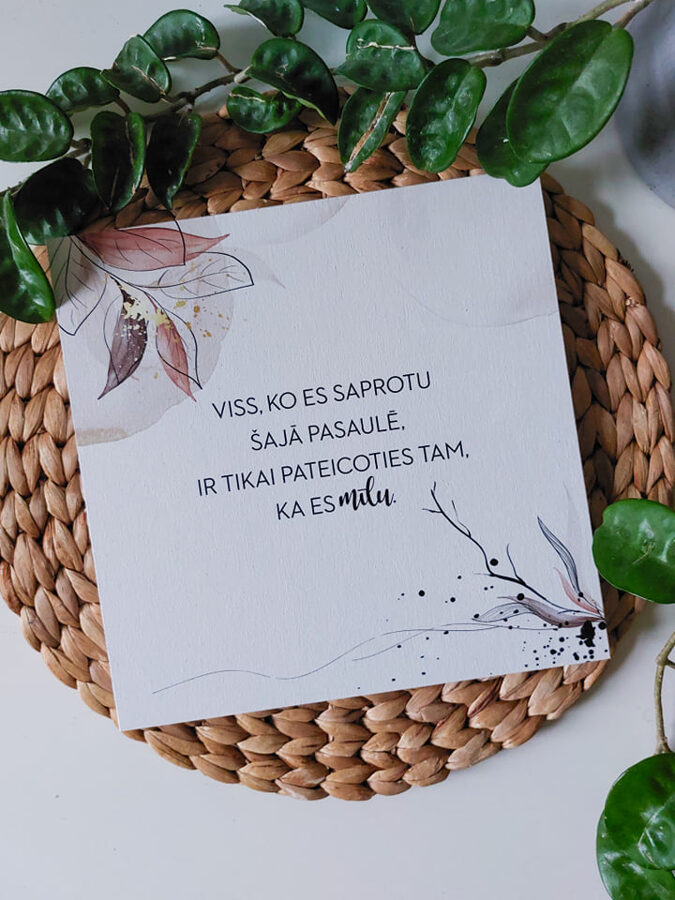 VISS, KO ES SAPROTU
ŠAJĀ PASAULĒ,
IR TIKAI PATEICOTIES TAM,
KA ES mīlu.